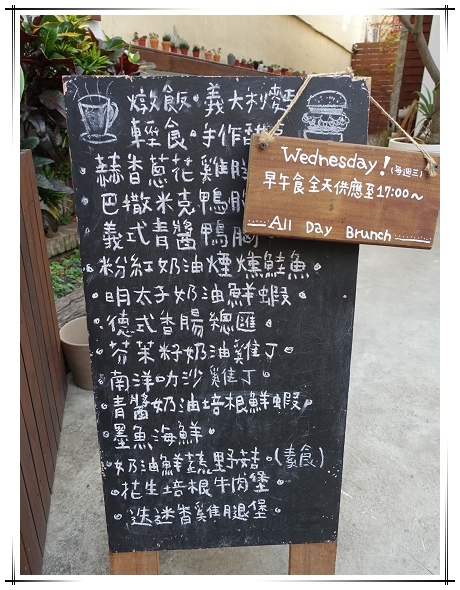 燉飯。義大利麵
輕食。手作甜
赫香蔥花雞腿
巴撒米克鴨胸
義式青醬鴨胸
粉紅奶油煙燻鮭魚
明太子奶油鮮蝦
德式香腸總匯
芥茉籽奶油雞丁
南洋叻沙雞丁
青醬奶油培根鮮蝦
墨魚海鮮
奶油鮮蔬野菇。(素食)
花生培根牛肉堡
迷迭香雞腿堡
Wednesday! (每週三)
早午食全天供應至17:00~
All Day Brunch